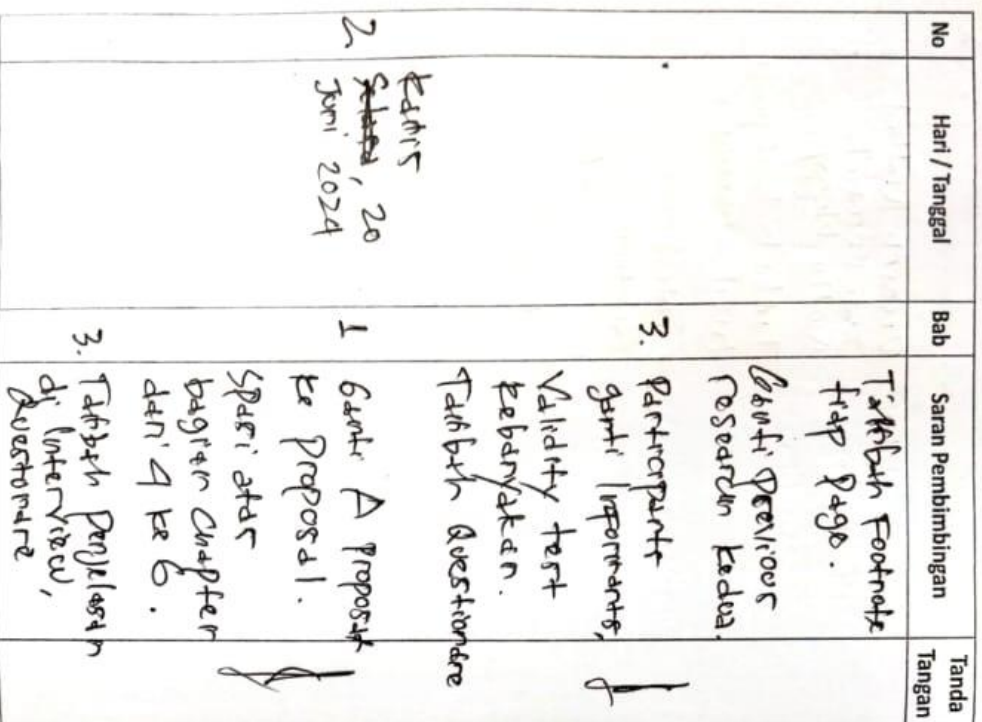 No Hari / Tanggal Bab Saran Pembimbingan Tanda Tangan
Tambah Footnote
tiap Page.
Ganti Previous
research kedua.
3. Participants
ganti Informants,
Validity test
kebanyakan.
Tambah Questionare
2 Kamis
Selasa, 20
Juni 2024
1 Ganti A proposal
ke Proposal.
Spasi atas
bagian chapter
dari 4 ke 6.
3. Tambah Penjelasan
di Interview,
Questionare